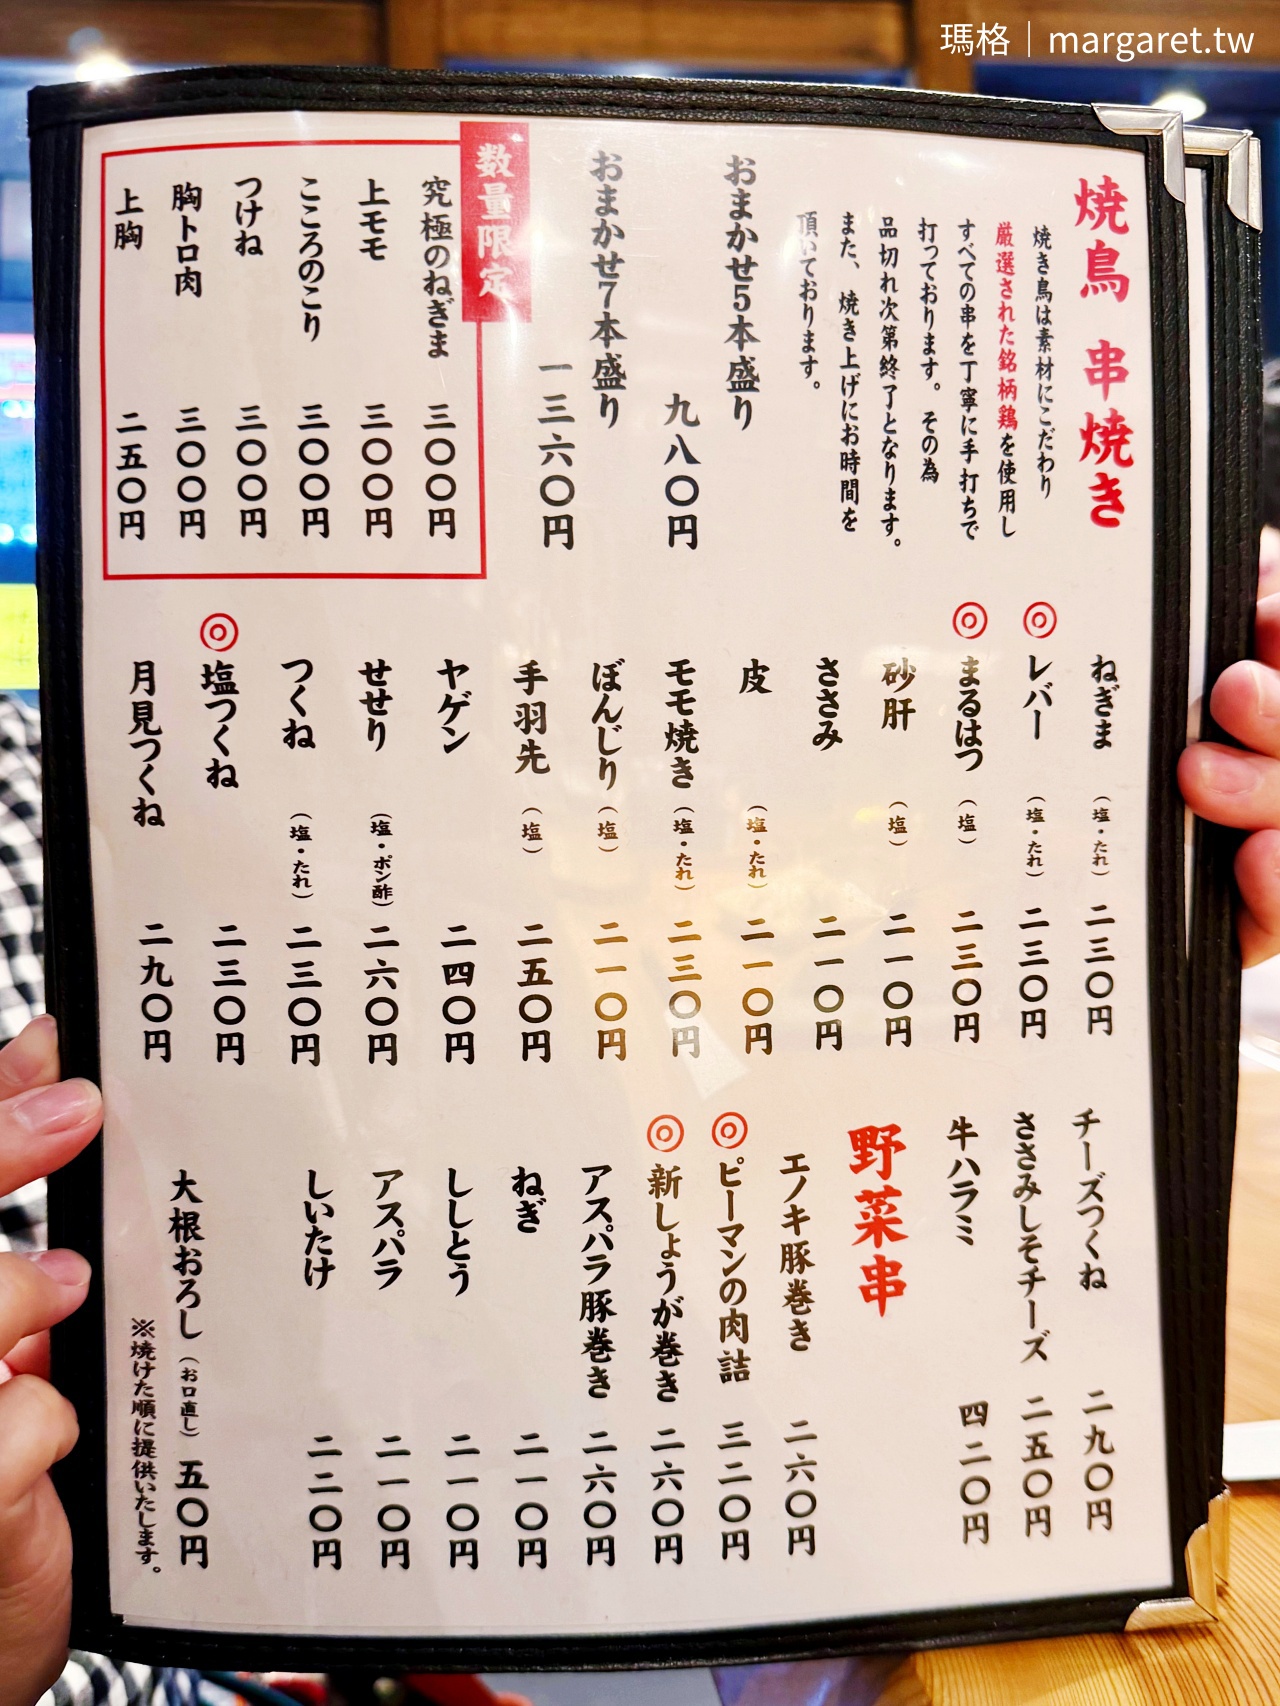 瑪格｜margaret.tw
焼鳥 串焼き
焼き鳥は素材にこだわり
厳選された銘柄鶏を使用し
すべての串を丁寧に手打ちで
打っております。その為
品切れ次第終了となります。
また、焼き上げにお時間を
頂いております。
おまかせ5本盛り
九八〇円
おまかせ7本盛り
一三六〇円
数量限定
究極のねぎま 三〇〇円
上モモ 三〇〇円
こころのこり 三〇〇円
つけね 三〇〇円
胸トロ肉 三〇〇円
上胸 二五〇円
ねぎま（塩・たれ） 二三〇円
◎レバー（塩・たれ） 二三〇円
◎まるはつ（塩） 二三〇円
砂肝（塩） 二一〇円
ささみ 二一〇円
皮（塩・たれ） 二一〇円
モモ焼き（塩・たれ） 二三〇円
ぼんじり（塩） 二一〇円
手羽先（塩） 二五〇円
ヤゲン 二四〇円
せせり（塩・ポン酢） 二六〇円
つくね（塩・たれ） 二三〇円
◎塩つくね 二三〇円
月見つくね 二九〇円
チーズつくね 二九〇円
ささみしそチーズ 二五〇円
牛ハラミ 四二〇円
野菜串
エノキ豚巻き 二六〇円
◎ピーマンの肉詰 三二〇円
◎新しょうが巻き 二六〇円
アスパラ豚巻き 二六〇円
ねぎ 二一〇円
ししとう 二一〇円
アスパラ 二一〇円
しいたけ 二二〇円
大根おろし（お口直し） 五〇円
※焼けた順に提供いたします。